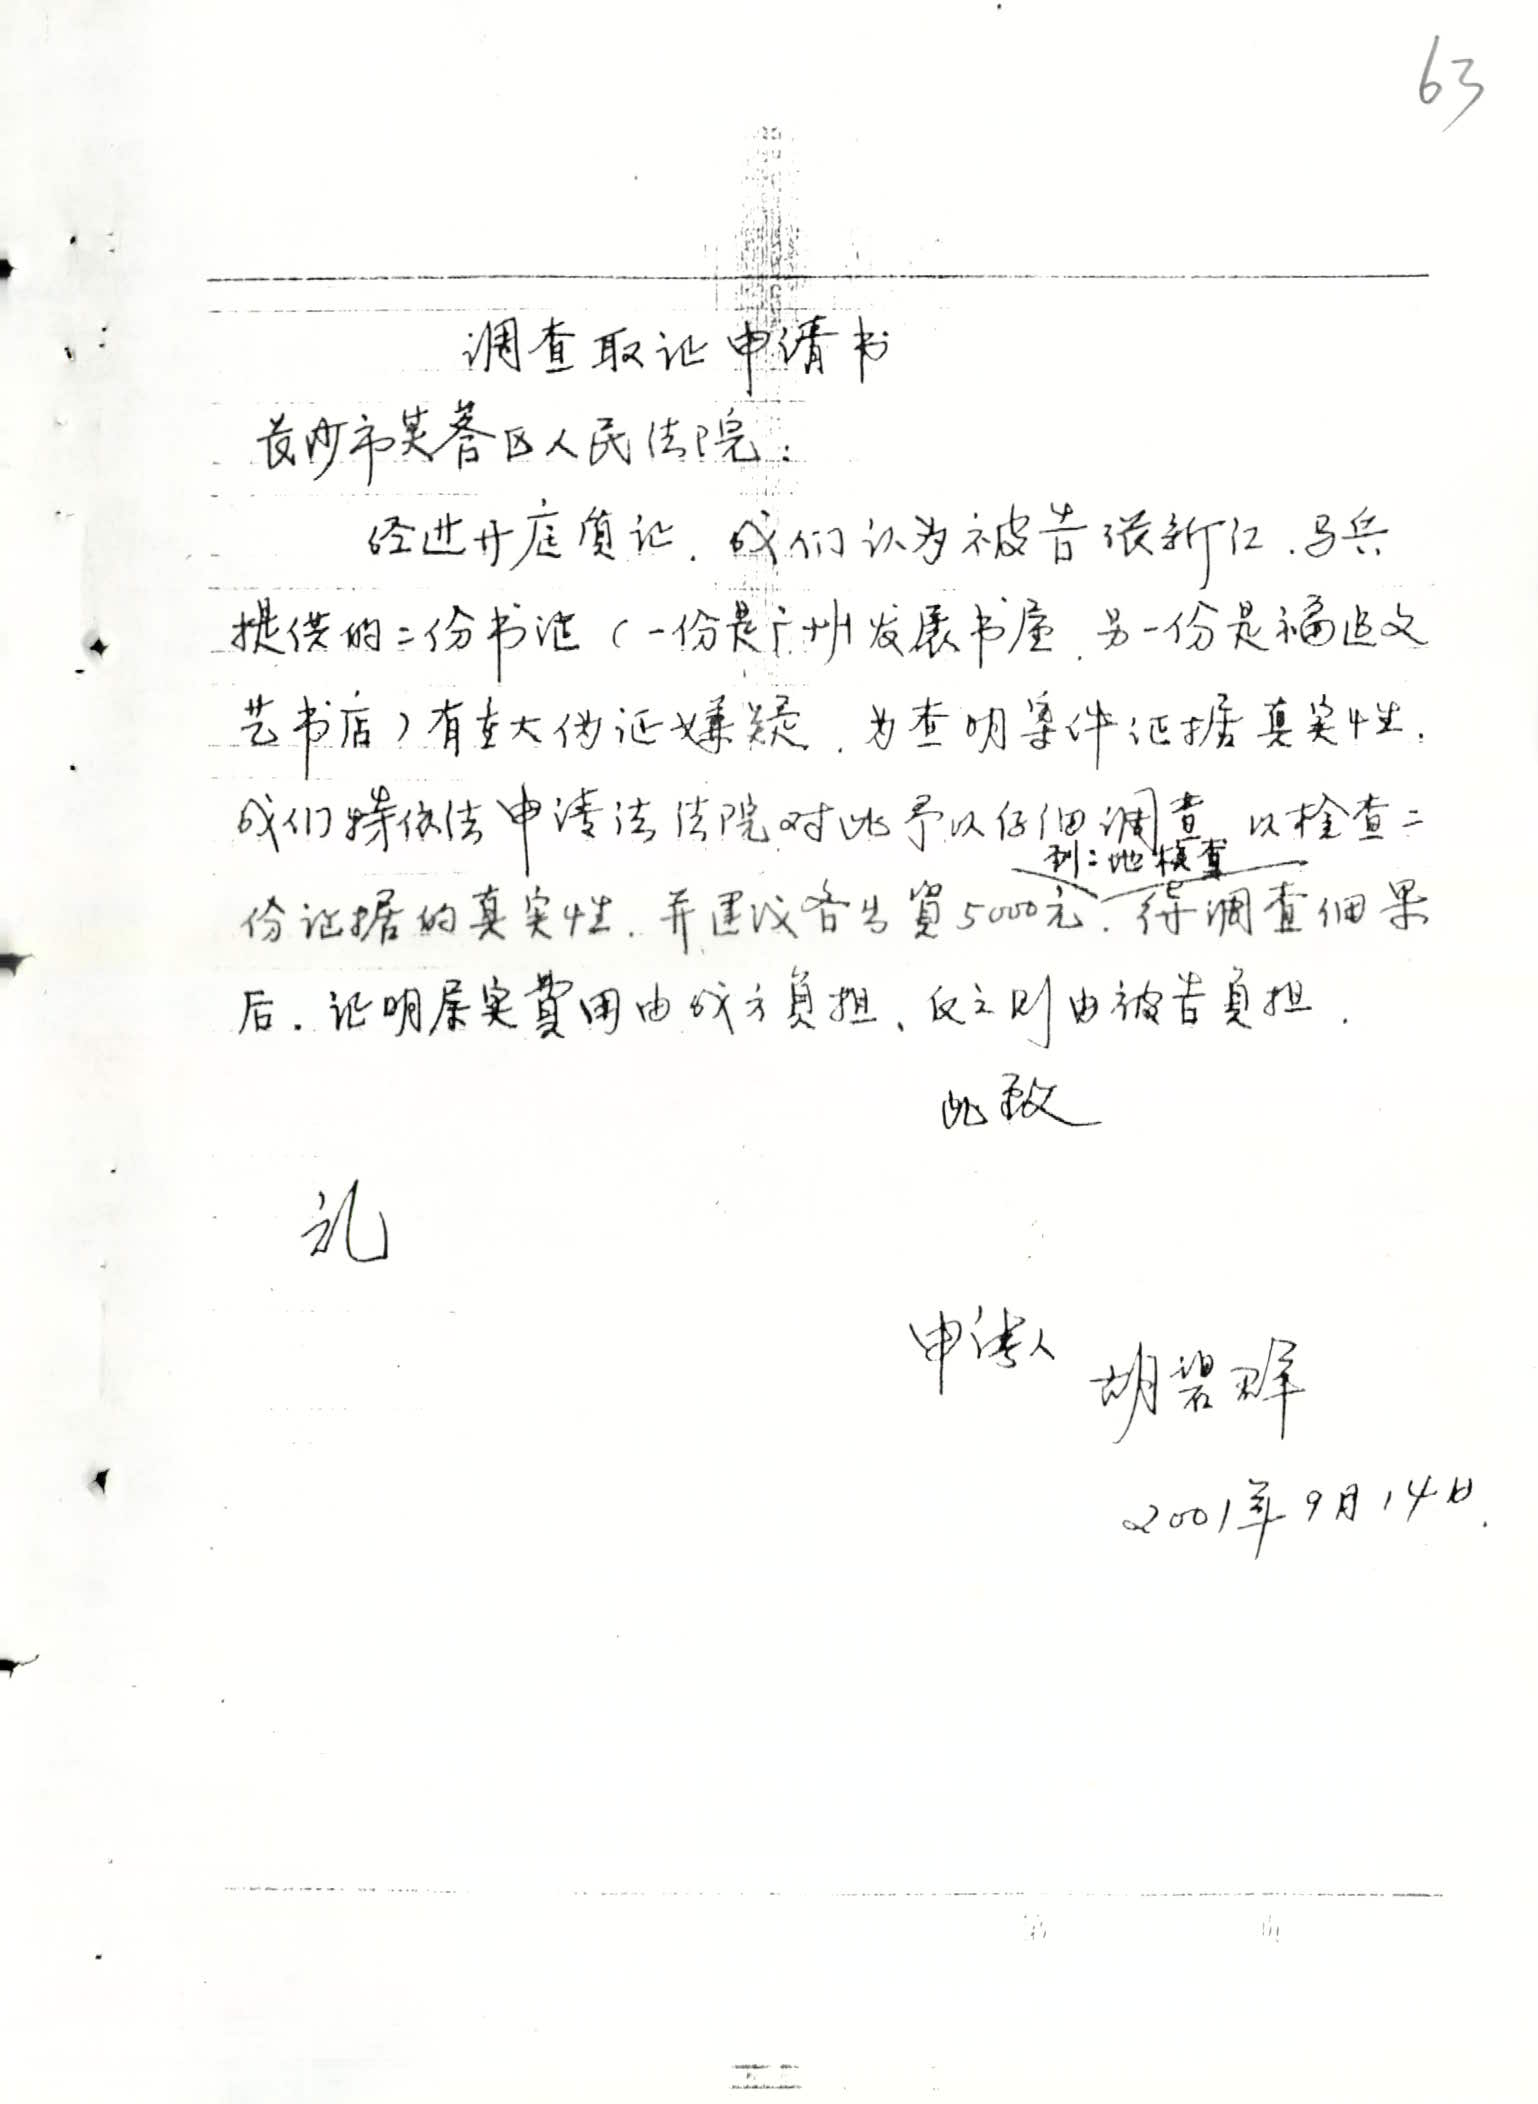 63
调查取证申请书
长沙市芙蓉区人民法院:
经过开庭质证,我们认为被告张新仁、马兵
提供的二份书证(一份是广州发展书屋,另一份是福建文
艺书店)有重大伪证嫌疑,为查明案件证据真实性,
我们特依法申请法法院对此予以仔细调查,以检查二
到二地核查
份证据的真实性.并建议各出资5000元.待调查细果
后.证明属实费用由我方负担、反之则由被告负担.
此致
礼
申请人
胡碧群
2001年9月14日.
第 页